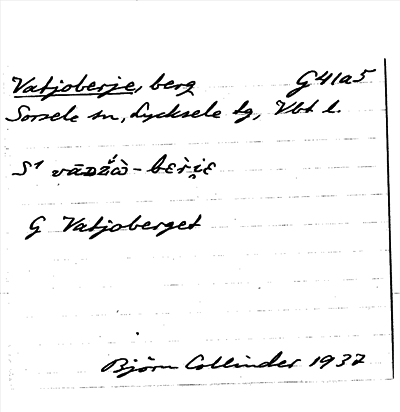 Vatjoberje, berg G41a5
Sorsele sn, Lycksele tg, Vbt l.
S1 vāᴅž́ὼ-bɛr̀i̯ɛ
G Vatjoberget
Björn Collinder 1937